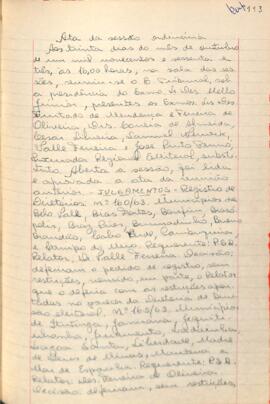 113
Ata da sessão ordinária
Aos trinta dias do mês de outubro
de um mil novecentos e sessenta e
três, às 16,00 horas, na sala das
sessões, reuniu-se o E. Tribunal, sob
a presidência do Exmo. Sr. Des. Mello
Júnior, presentes os Exmos. Srs. Des.
Furtado de Mendonça e Ferreira de
Oliveira, Drs. Corrêa de Almeida,
Cesar Silveira, Samuel
Valle Ferreira e José Pinto
Procurador Regional Eleitoral, substi-
tuto. Aberta a sessão, foi lida
e aprovada a ata da reunião
anterior. - JULGAMENTOS - Registro de
Diretórios nº 160/63. Municípios de
Belo Valle, Brás Pires, Bonfim,
Brumadinho, Bueno
Brandão, Cambuquira
e Campo do Meio. Requerente: P.S.D.
Relator: Dr. Valle Ferreira. Decisão:
deferiram o pedido de registro, sem
restrições, vencido, em parte, o Relator
que o deferia com as restrições apon-
tadas no parecer da Diretoria de
eleitoral. Nº 163/63. Municípios
de Itutinga, Jequiti-
nhonha, Ladainha,
Lagoa Santa, Liberdade, Madre
de Deus de Minas, Mantena e
Mar de Espanha. Requerente: P.S.D.
Relator: Des. Ferreira de Oliveira.
Decisão: deferiram, sem restrições,